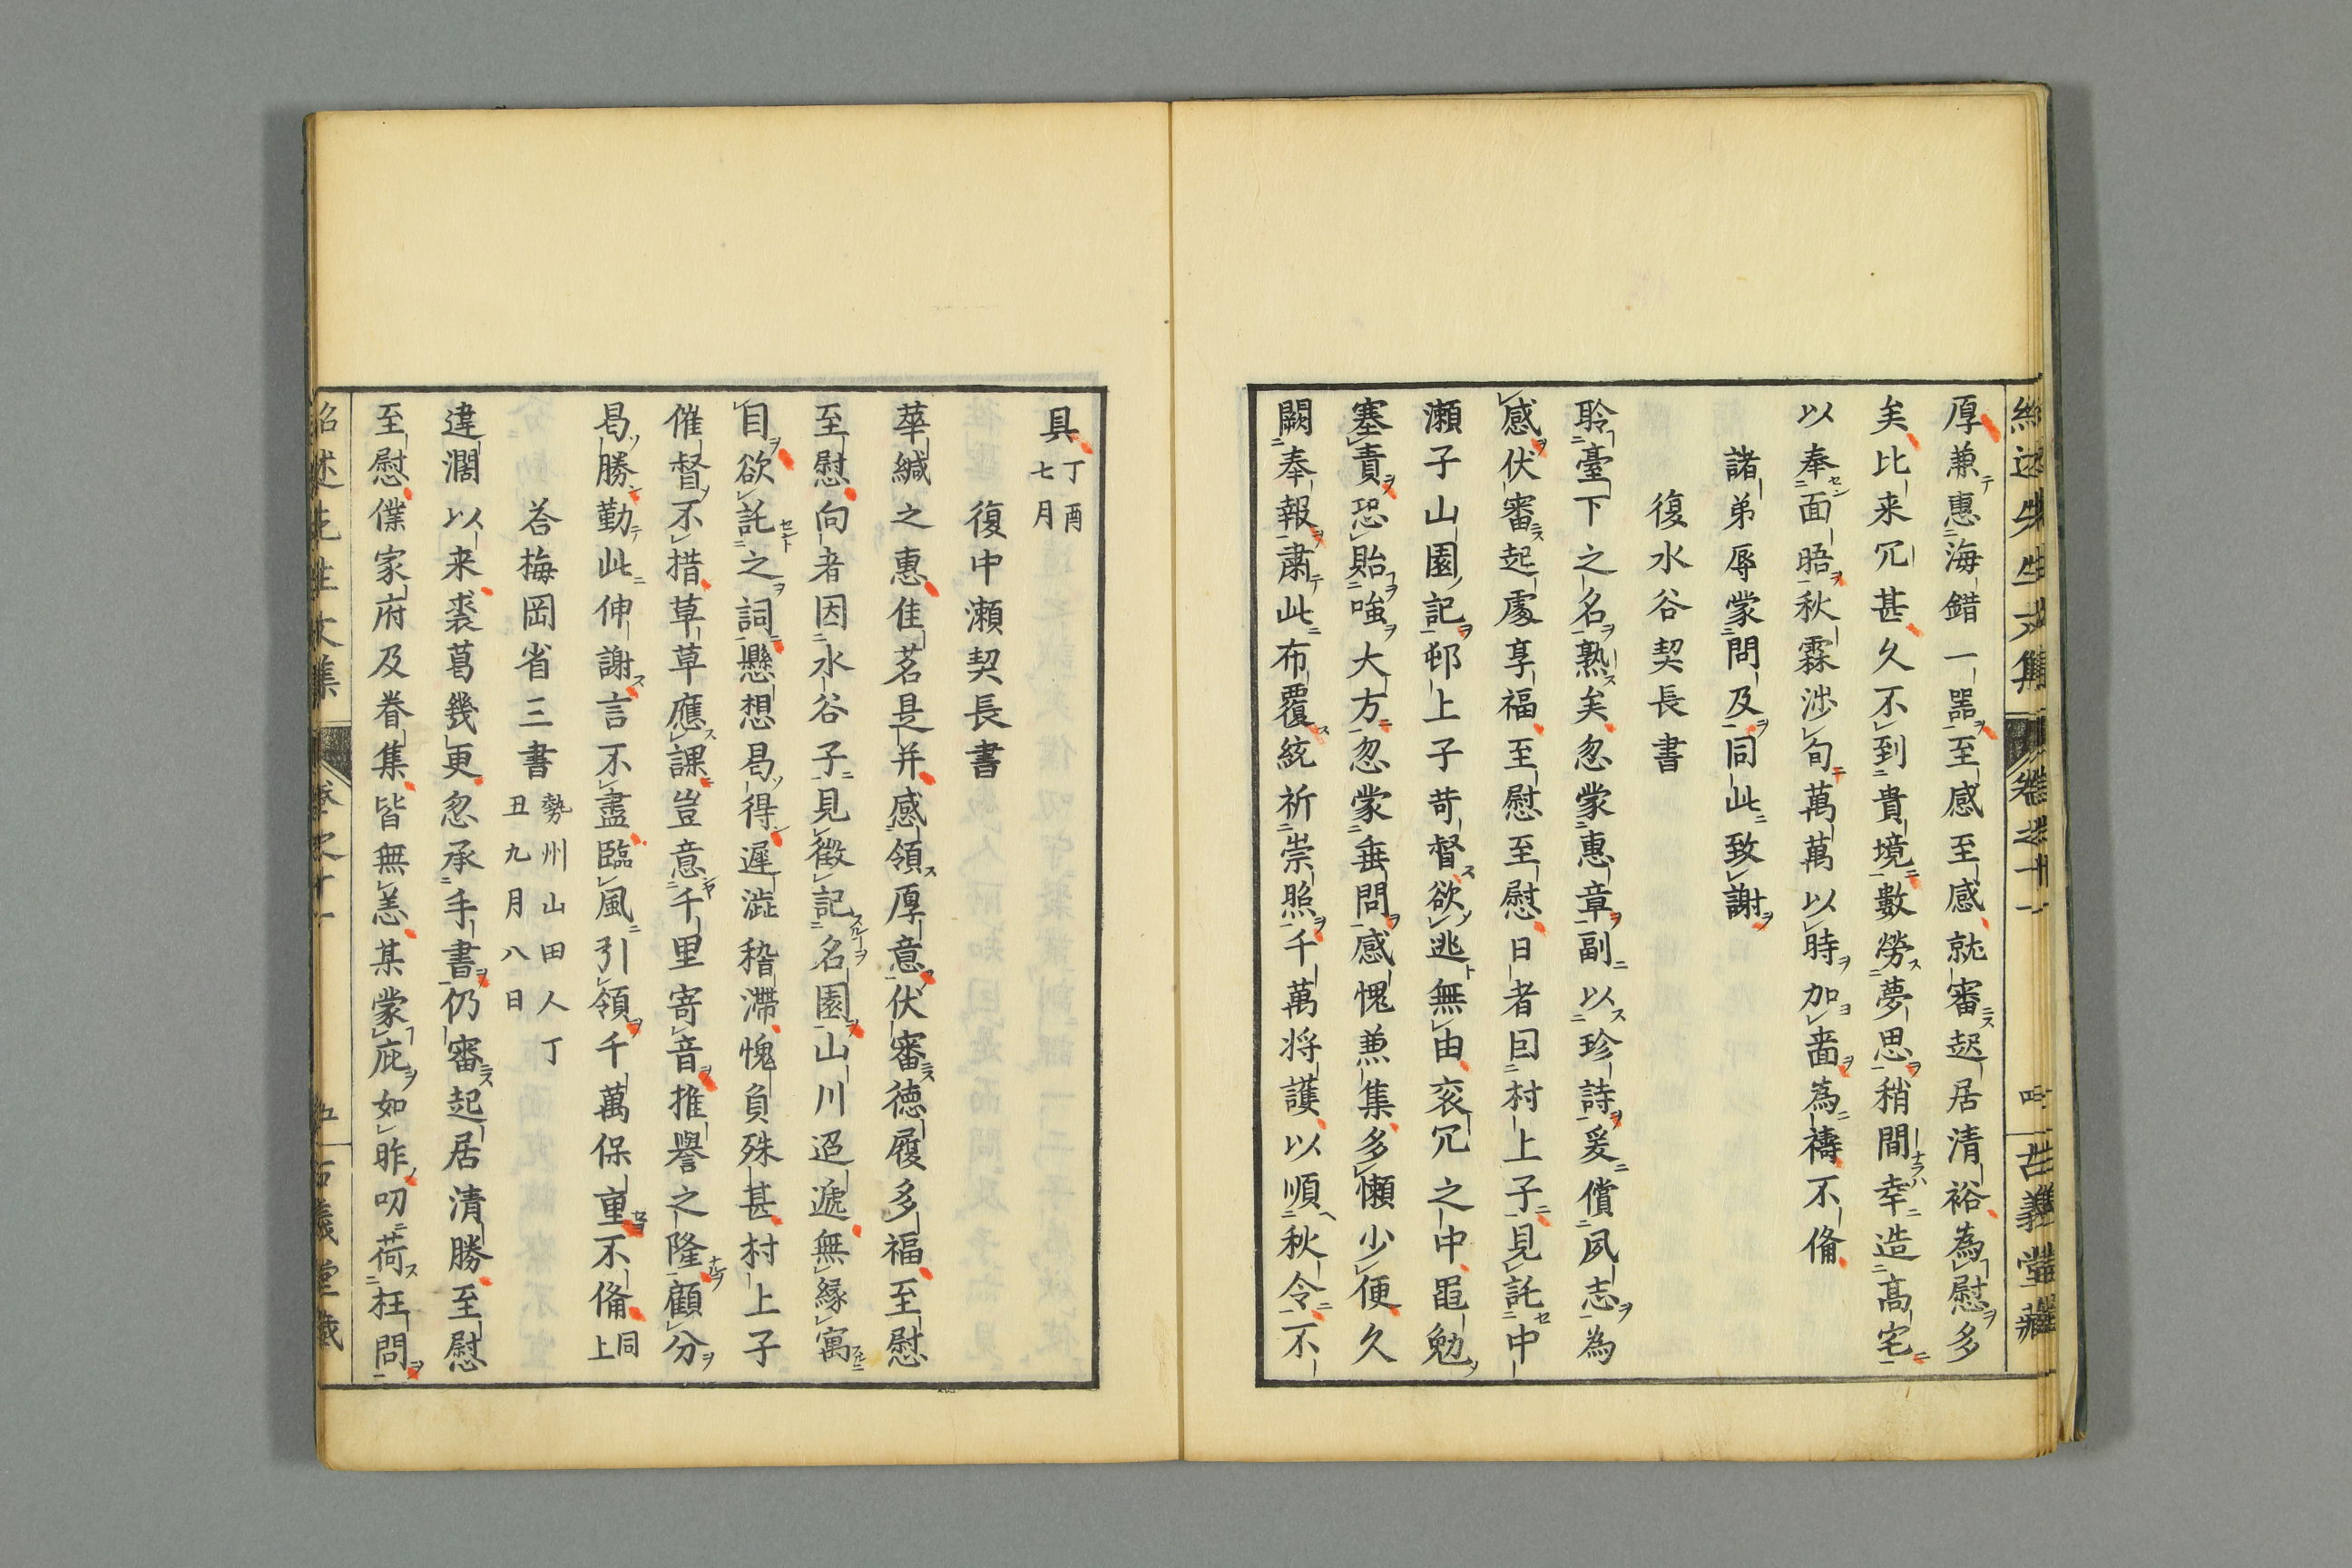 紹述先生文集 卷之十一 四 古義堂藏
厚兼惠海錯一噐至感至感就審起居清裕為慰多
矣比来冗甚久不到貴境數勞夢思稍間幸造高宅
以奉面晤秋霖渉旬萬萬以時加嗇為禱不備
諸弟辱蒙問及同此致謝
復水谷契長書
聆臺下之名熟矣忽蒙惠章副以珍詩爰償夙志為
感伏審起處享福至慰至慰日者囙村上子見託中
瀬子山園記邨上子苛督欲逃無由衮冗之中黽勉
塞責恐貽嗤大方忽蒙垂問感愧兼集多懶少便久
闕奉報肅此布覆統祈崇照千萬将護以順秋令不
具丁酉七月
復中瀬契長書
華緘之惠佳茗是并感領厚意伏審徳履多福至慰
至慰向者因水谷子見徴記名園山川迢遞無縁寓
目欲託之詞懸想曷得遲澁稽滞愧負殊甚村上子
催督不措草草應課豈意千里寄音推譽之隆顧分
曷勝勤此伸謝言不盡臨風引領千萬保重不備同上
荅梅岡省三書勢州山田人丁丑九月八日
違濶以来裘葛幾更忽承手書仍審起居清勝至慰
至慰僕家府及眷集皆無恙某蒙庇如昨叨荷枉問
紹述先生文集 卷之十一 五 古義堂藏